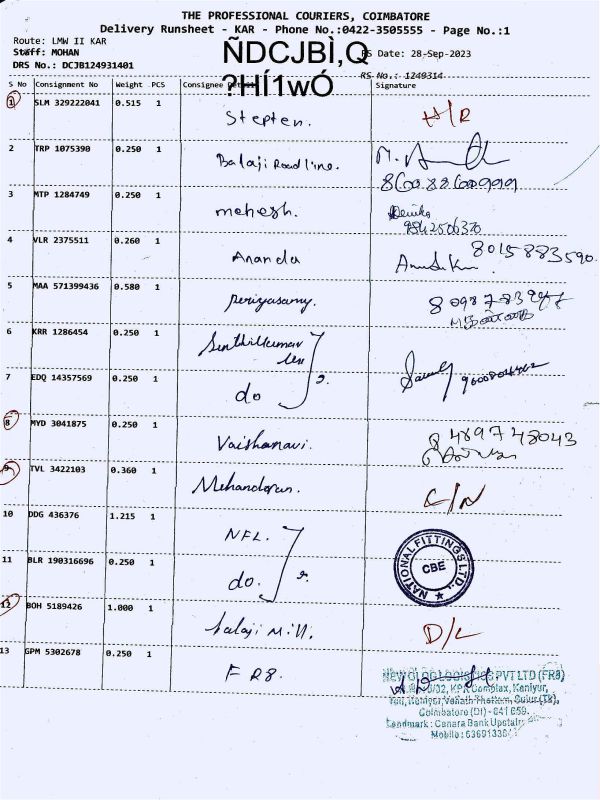 THE PROFESSIONAL COURIERS, COIMBATORE
Delivery Runsheet - KAR - Phone No.:0422-3505555 - Page No.:1
Route: LMW II KAR
Staff: MOHAN
RS Date: 28-Sep-2023
DRS No.: DCJB124931401
RS No.: 1249314
ÑDCJBÌ,Q
?HÍ1wÓ
S No Consignment No Weight PCS Consignee Signature
1 SLM 329222041 0.515 1 Stepten. H/R
2 TRP 1075390 0.250 1 Balaji Roadline.
3 MTP 1284749 0.250 1 mehesh.
4 VLR 2375511 0.260 1 Ananda 8015883590.
5 MAA 571399436 0.580 1 periyasamy.
6 KRR 1286454 0.250 1 Senthilkumar
7 EDQ 14357569 0.250 1 do
8 MYD 3041875 0.250 1 Vaishanavi.
9 TVL 3422103 0.360 1 C/N
10 DDG 436376 1.215 1 NFL.
11 BLR 190316696 0.250 1 do.
NATIONAL FITTINGS LTD. CBE
12 BOH 5189426 1.000 1 balaji Mill. D/L
13 GPM 5302678 0.250 1 FR8.
PVT LTD (FR8)
KPR Complex, Kaniyur,
Coimbatore (DT) - 641 659.
Landmark : Canara Bank Upstair
Mobile :